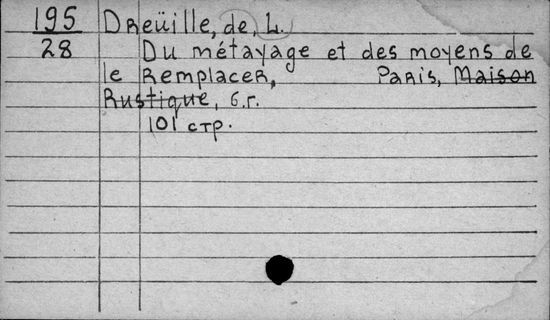 195 Dreüille, de, L.
28 Du métayage et des moyens de
le Remplacer, Paris, Maison
Rustique, б.г.
101 стр.